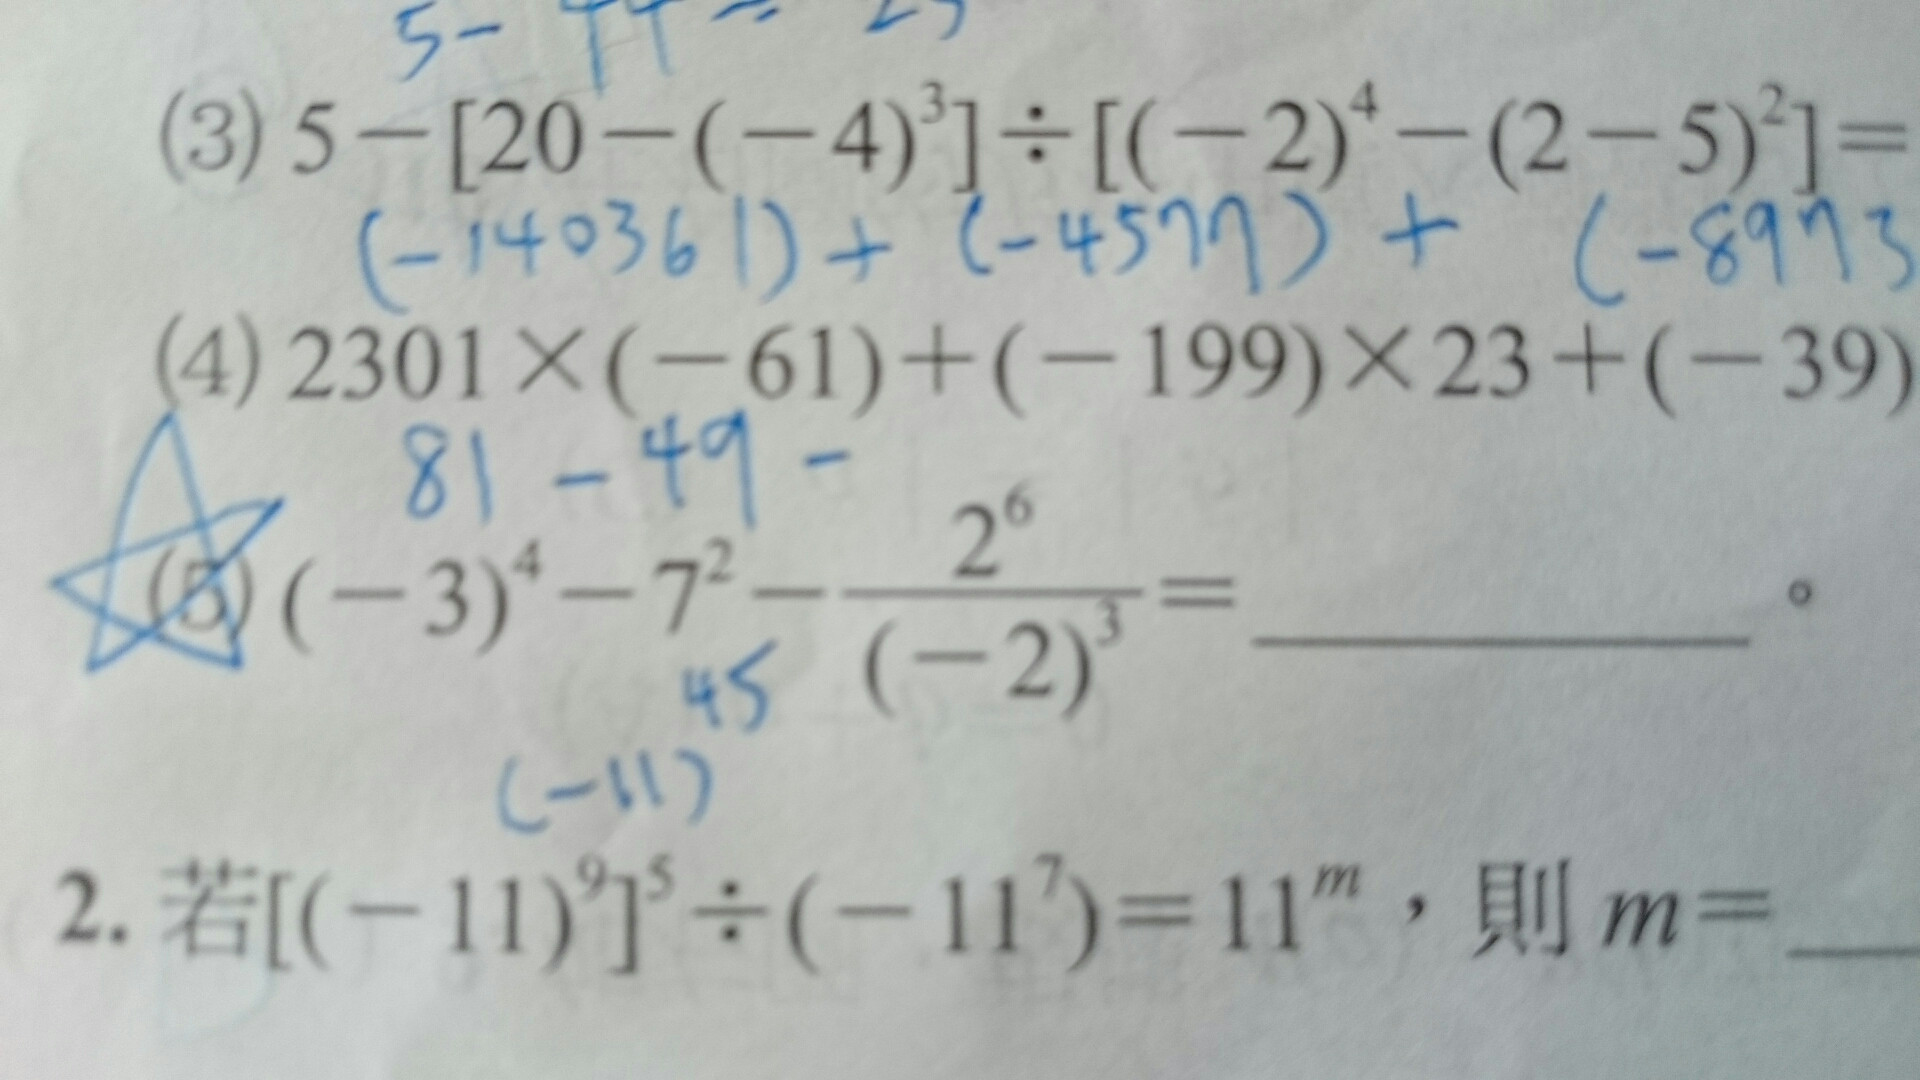 (3) 5－[20－(－4)³]÷[(－2)⁴－(2－5)²]＝
(-140361) + (-4577) + (-8973
(4) 2301×(－61)＋(－199)×23＋(－39)
81 - 49 -
(5) (－3)⁴－7²－2⁶/(－2)³＝______。
45
(-11)
2. 若[(－11)⁹]⁵÷(－11⁷)＝11ᵐ，則 m＝__